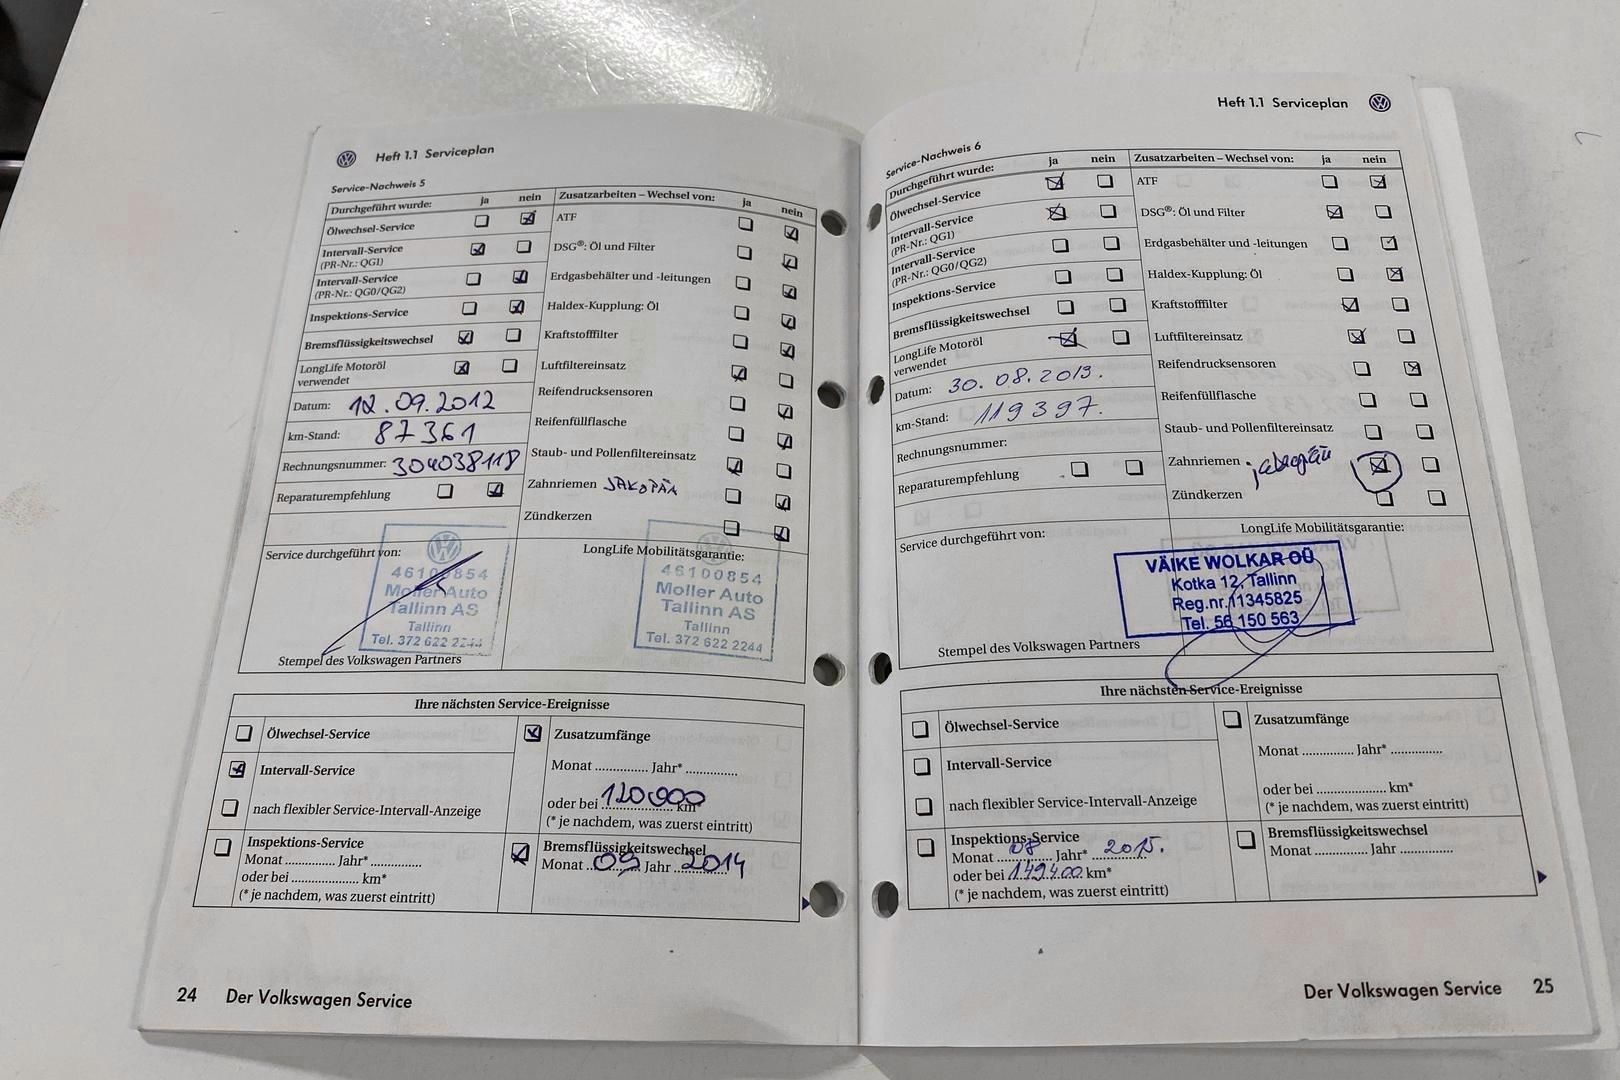 Heft 1.1 Serviceplan
Service-Nachweis 5
Durchgeführt wurde: ja nein
Ölwechsel-Service
Intervall-Service
(PR-Nr.: QG1)
Intervall-Service
(PR-Nr.: QG0/QG2)
Inspektions-Service
Bremsflüssigkeitswechsel
LongLife Motoröl
verwendet
Datum: 12.09.2012
km-Stand: 87361
Rechnungsnummer: 304038118
Reparaturempfehlung
Zusatzarbeiten – Wechsel von: ja nein
ATF
DSG®: Öl und Filter
Erdgasbehälter und -leitungen
Haldex-Kupplung: Öl
Kraftstofffilter
Luftfiltereinsatz
Reifendrucksensoren
Reifenfüllflasche
Staub- und Pollenfiltereinsatz
Zahnriemen
Zündkerzen
Service durchgeführt von:
46100854
Moller Auto
Tallinn AS
Tallinn
Tel. 372 622 2244
Stempel des Volkswagen Partners
LongLife Mobilitätsgarantie:
46100854
Moller Auto
Tallinn AS
Tallinn
Tel. 372 622 2244
Ihre nächsten Service-Ereignisse
Ölwechsel-Service
Intervall-Service
nach flexibler Service-Intervall-Anzeige
Inspektions-Service
Monat .............. Jahr* .............
oder bei ................... km*
(* je nachdem, was zuerst eintritt)
Zusatzumfänge
Monat .............. Jahr* .............
oder bei 120000 km*
(* je nachdem, was zuerst eintritt)
Bremsflüssigkeitswechsel
Monat 09 Jahr 2014
24 Der Volkswagen Service
Heft 1.1 Serviceplan
Service-Nachweis 6
Durchgeführt wurde: ja nein
Ölwechsel-Service
Intervall-Service
(PR-Nr.: QG1)
Intervall-Service
(PR-Nr.: QG0/QG2)
Inspektions-Service
Bremsflüssigkeitswechsel
LongLife Motoröl
verwendet
Datum: 30.08.2013.
km-Stand: 119397.
Rechnungsnummer:
Reparaturempfehlung
Zusatzarbeiten – Wechsel von: ja nein
ATF
DSG®: Öl und Filter
Erdgasbehälter und -leitungen
Haldex-Kupplung: Öl
Kraftstofffilter
Luftfiltereinsatz
Reifendrucksensoren
Reifenfüllflasche
Staub- und Pollenfiltereinsatz
Zahnriemen
Zündkerzen
Service durchgeführt von:
LongLife Mobilitätsgarantie:
VÄIKE WOLKAR OÜ
Kotka 12, Tallinn
Reg.nr.11345825
Tel. 56 150 563
Stempel des Volkswagen Partners
Ihre nächsten Service-Ereignisse
Ölwechsel-Service
Intervall-Service
nach flexibler Service-Intervall-Anzeige
Inspektions-Service
Monat 08 Jahr* 2015.
oder bei 149400 km*
(* je nachdem, was zuerst eintritt)
Zusatzumfänge
Monat .............. Jahr* ..............
oder bei ................... km*
(* je nachdem, was zuerst eintritt)
Bremsflüssigkeitswechsel
Monat .............. Jahr ..............
Der Volkswagen Service 25